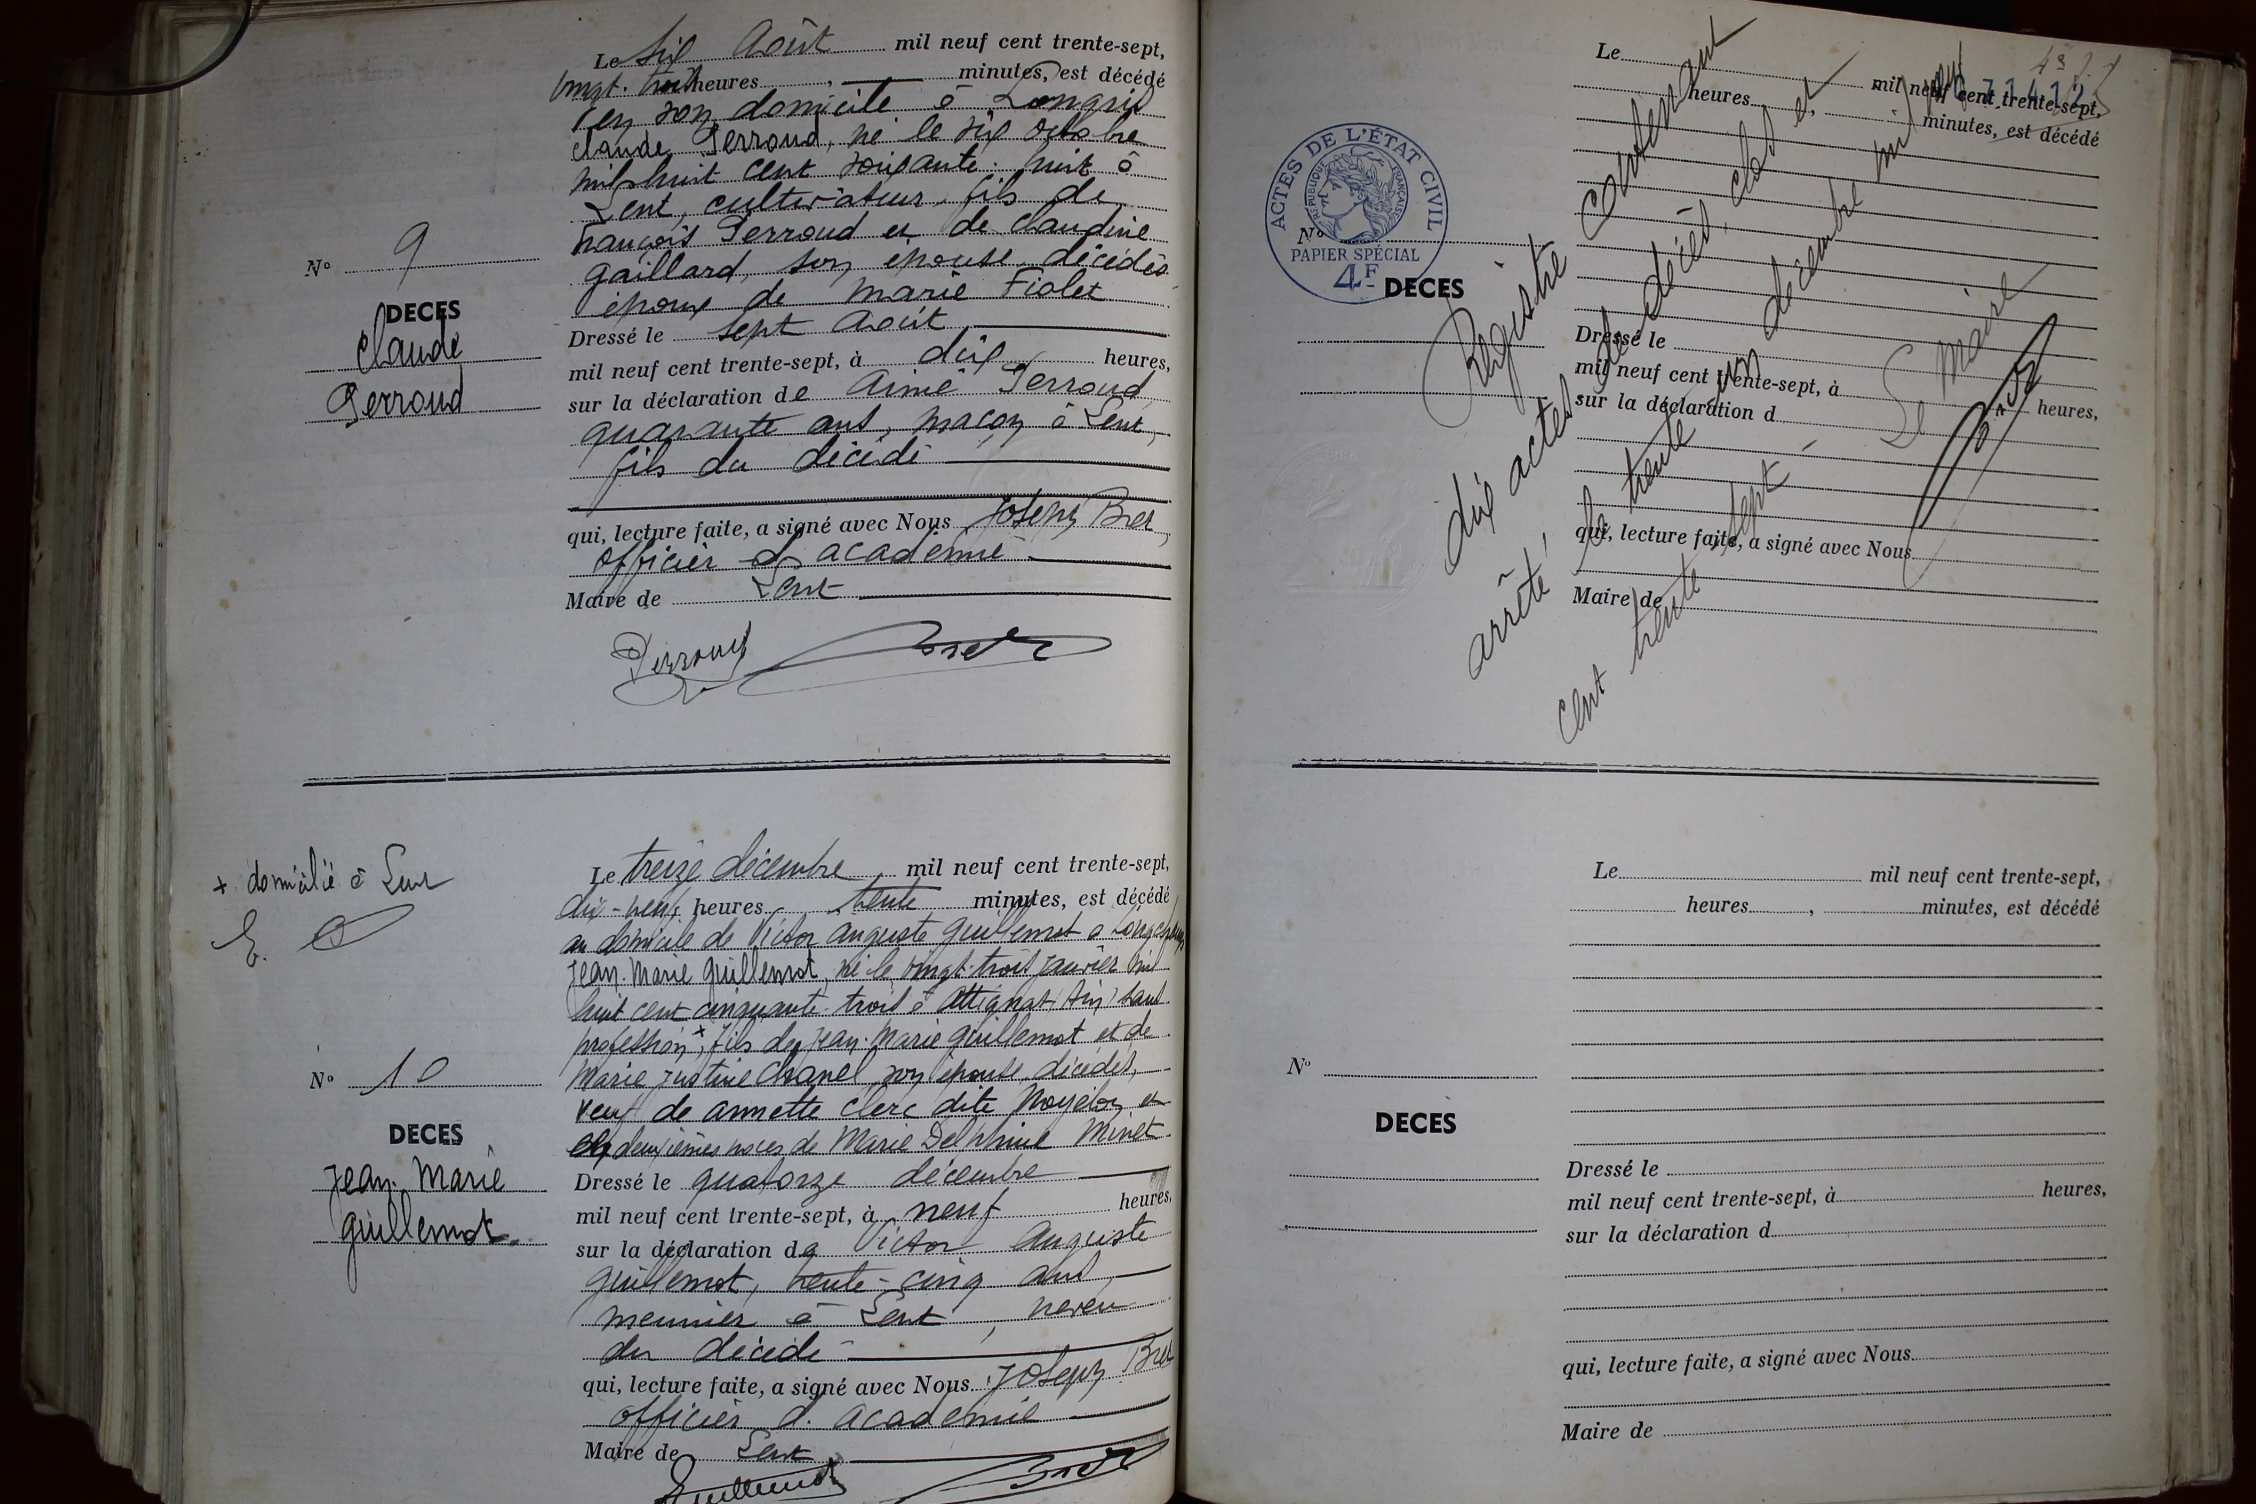 Le six Août mil neuf cent trente-sept,
vingt-trois heures, minutes, est décédé
en son domicile à Longris
Claude Perroud, né le six octobre
mil huit cent soixante-huit à
Lent, cultivateur, fils de
François Perroud et de Claudine
Gaillard, son épouse, décédés
époux de Marie Fiolet
Dressé le sept Août
mil neuf cent trente-sept, à dix heures,
sur la déclaration de Aimé Perroud
quarante ans, maçon à Lent,
fils du décédé
qui, lecture faite, a signé avec Nous Joseph Bret,
officier d'académie
Maire de Lent
Perroud Bret
No 9
DECES
Claude
Perroud
+ domicilié à Lent
Le treize décembre mil neuf cent trente-sept,
dix-neuf heures trente minutes, est décédé
au domicile de Victor Auguste Guillemot à Longchamp
Jean-Marie Guillemot, né le vingt-trois janvier mil
huit cent cinquante-trois à Attignat (Ain) sans
profession +, fils de Jean-Marie Guillemot et de
Marie Justine Chanel, son épouse, décédés,
veuf de Annette Clerc dite et
en deuxièmes noces de Marie Delphine Minet
Dressé le quatorze décembre
mil neuf cent trente-sept, à neuf heures,
sur la déclaration de Victor Auguste
Guillemot, trente-cinq ans,
meunier à Lent, neveu
du décédé
qui, lecture faite, a signé avec Nous Joseph Bret
officier d'académie
Maire de Lent
Guillemot Bret
No 10
DECES
Jean-Marie
Guillemot
Le mil neuf cent trente-sept,
heures, minutes, est décédé
ACTES DE L'ÉTAT CIVIL
RÉPUBLIQUE FRANÇAISE
PAPIER SPÉCIAL
4F
No
DECES
Dressé le
mil neuf cent trente-sept, à heures,
sur la déclaration d
qui, lecture faite, a signé avec Nous
Maire de
Registre contenant
dix actes de décès, clos et
arrêté le trente un décembre mil neuf
cent trente sept -
Le Maire
Bret
Le mil neuf cent trente-sept,
heures, minutes, est décédé
No
DECES
Dressé le
mil neuf cent trente-sept, à heures,
sur la déclaration d
qui, lecture faite, a signé avec Nous
Maire de